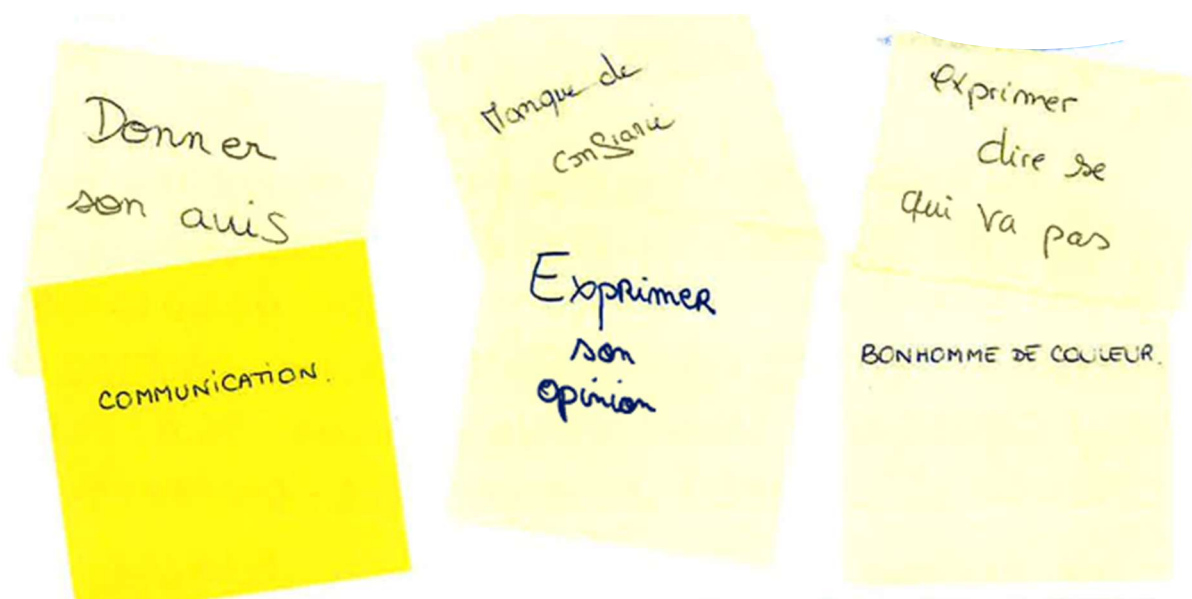 Donner
son avis
COMMUNICATION.
Manque de
confiance
Exprimer
son
opinion
exprimer
dire se
qui va pas
BONHOMME DE COULEUR.